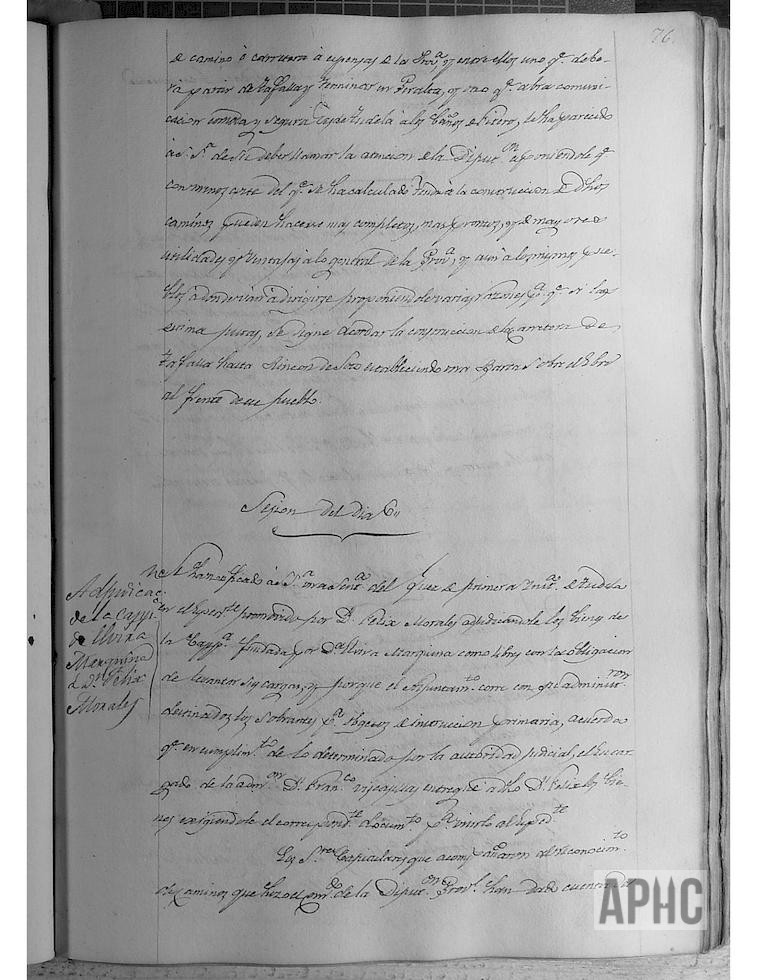 76.
de camino ó carretera á espensas de la Prov.ª, y entre ellos uno q.e debe-
ria partir de Tafalla y terminar en Peralta, y otro q.e abra comuni-
cacion comoda y segura desde Tudela á los baños de Fitero, le ha parecido
á S. S.ª de su deber llamar la atencion de la Diput.on esponiendole q.e
con menos coste del q.e se ha calculado tendrá la construccion de dhos
caminos pueden hacerse mas completos, mas prontos, y de mayores
utilidades y ventajas á lo general de la Prov.ª, y aun á los mismos pue-
blos á donde van á dirigirse proponiendole varias razones p.ª q.e si las
estima justas, se digne acordar la construccion de la carretera de
Tafalla hasta Rincon de Soto estableciendo una Barca sobre el Ebro
al frente de su pueblo.
Sesion del dia 6
Adjudicac.n
de la Capp.ª
de Elvira
Marquina
á D.n Felix
Morales
Se ha notificado á S. S.ª una Sent.ª del Juez de primera Inst.ª de Tudela
en el Esped.te promovido por D.n Felix Morales adjudicandole los bienes de
la Capp.ª fundada por D.ª Elvira Marquina como libres con la obligacion
de levantar sus cargas, y porque el Ayuntam.to corre con su administr.on
destinados los sobrantes p.ª objetos de instruccion primaria, acuerda
q.e en cumplim.to de lo determinado por la autoridad judicial, el Encar-
gado de la adm.on D.n Fran.co entregue á dho D.n Felix los bie-
nes exigiendole el correspond.te docum.to p.ª unirlo al Esped.te
Los S.res Capitulares que acompañaron al reconocim.to
de caminos que hizo el de la Diput.on Prov.l han dado cuenta de
APHC